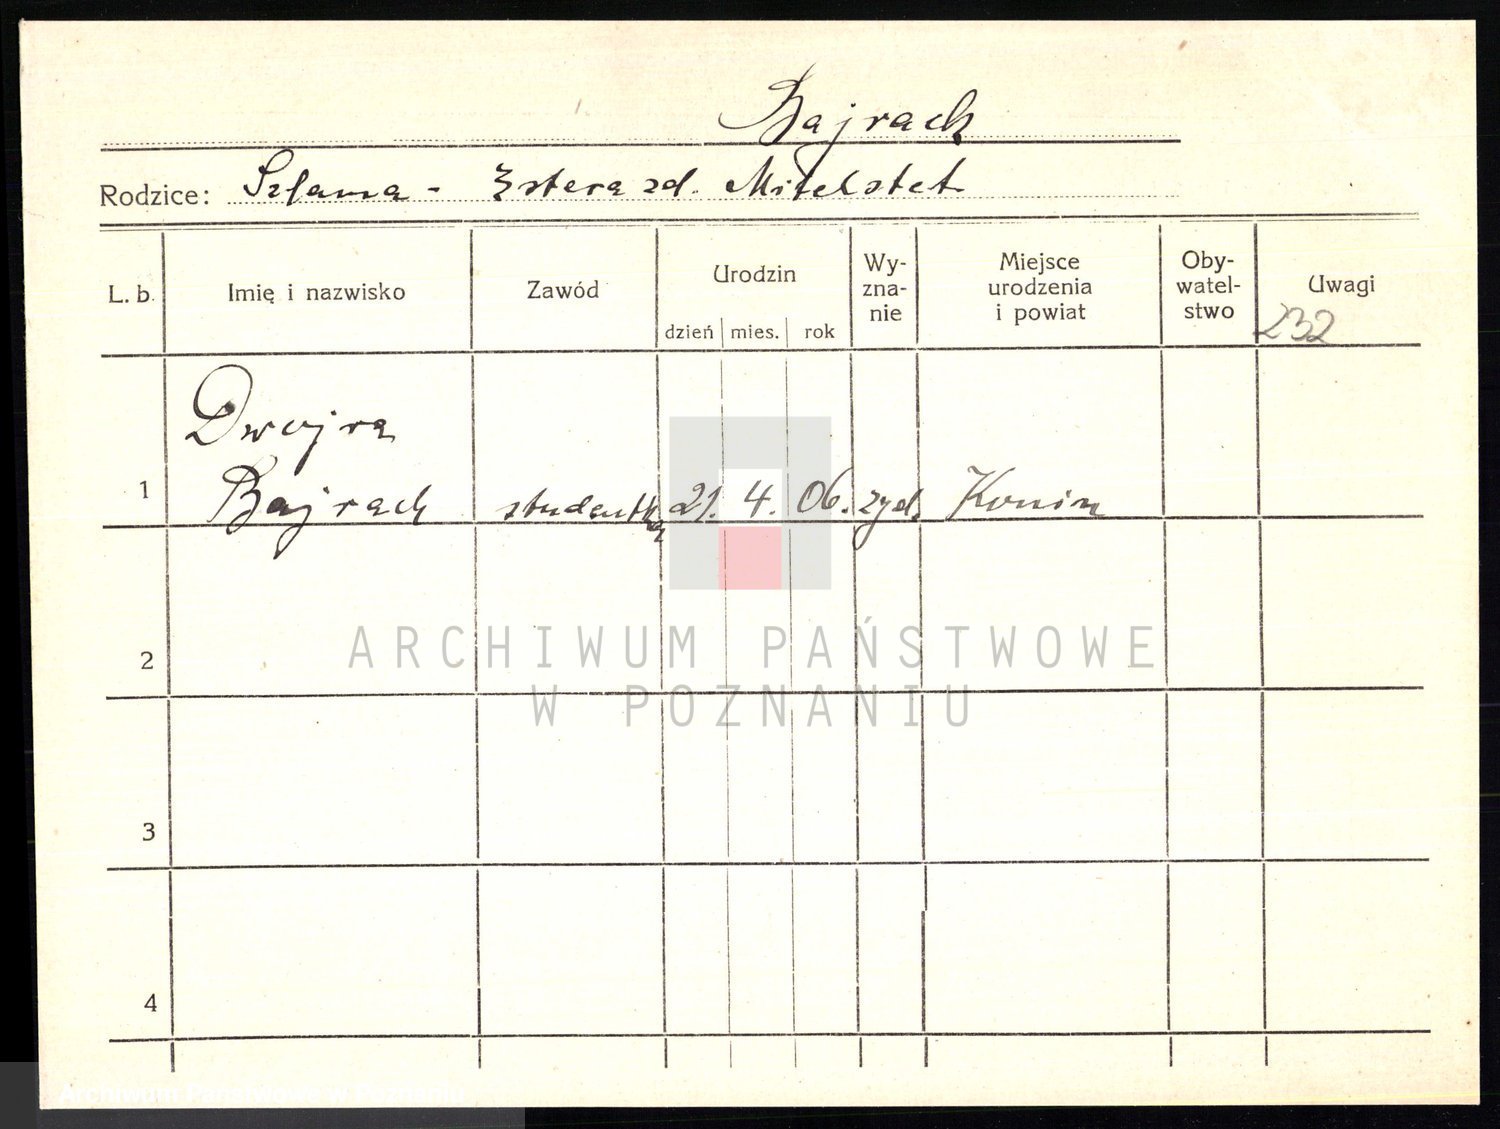 Bajrach
Rodzice: Szlama - Estera zd. Mitelstet
L. b. Imię i nazwisko Zawód Urodzin Wy-zna-nie Miejsce urodzenia i powiat Oby-watel-stwo Uwagi
dzień mies. rok
232
Dwojra
1 Bajrach studentka 21. 4. 06. żyd. Konin
2
3
4
ARCHIWUM PAŃSTWOWE
W POZNANIU
Archiwum Państwowe w Poznaniu